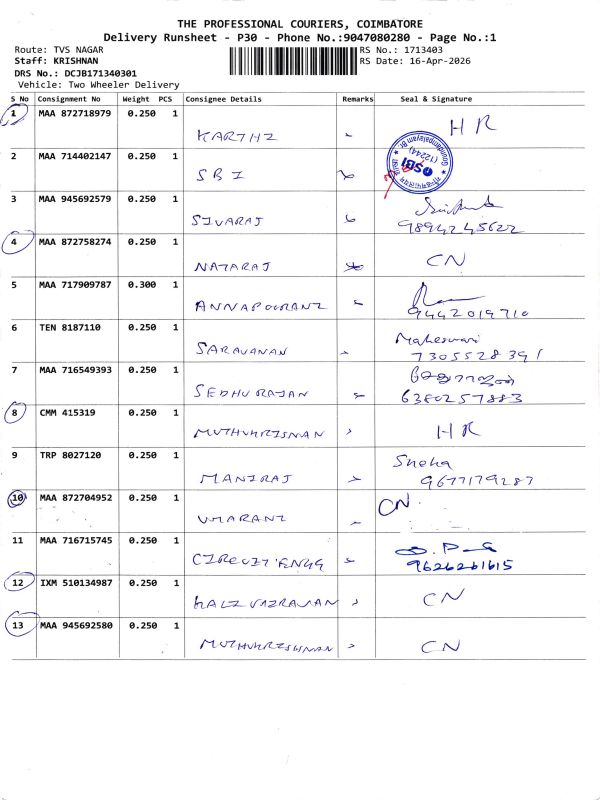 THE PROFESSIONAL COURIERS, COIMBATORE
Delivery Runsheet - P30 - Phone No.:9047080280 - Page No.:1
Route: TVS NAGAR
RS No.: 1713403
Staff: KRISHNAN
RS Date: 16-Apr-2026
DRS No.: DCJB171340301
Vehicle: Two Wheeler Delivery
S No Consignment No Weight PCS Consignee Details Remarks Seal & Signature
1 MAA 872718979 0.250 1
KARTHI HR
2 MAA 714402147 0.250 1
SBI
SBI
(12244)
3 MAA 945692579 0.250 1
SIVARAJ 9894245622
4 MAA 872758274 0.250 1
NATARAJ CN
5 MAA 717909787 0.300 1
ANNAPOORANI 9442019710
6 TEN 8187110 0.250 1 Maheswari
SARAVANAN 7305528391
7 MAA 716549393 0.250 1
SEDHURAJAN 6380257883
8 CMM 415319 0.250 1
MUTHUKRISHNAN HR
9 TRP 8027120 0.250 1 Sneha
MANIRAJ 9677179287
10 MAA 872704952 0.250 1 CN
UMARANI
11 MAA 716715745 0.250 1
CIRCUIT ENGG 9626261615
12 IXM 510134987 0.250 1
CN
13 MAA 945692580 0.250 1
MUTHUKRISHNAN CN